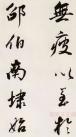 無疲以至於
邵伯南埭始